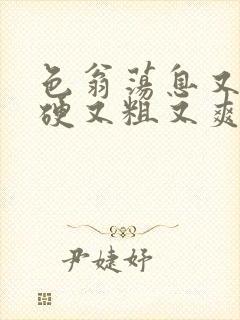 色翁荡息又大又
硬又粗又爽
尹婕妤